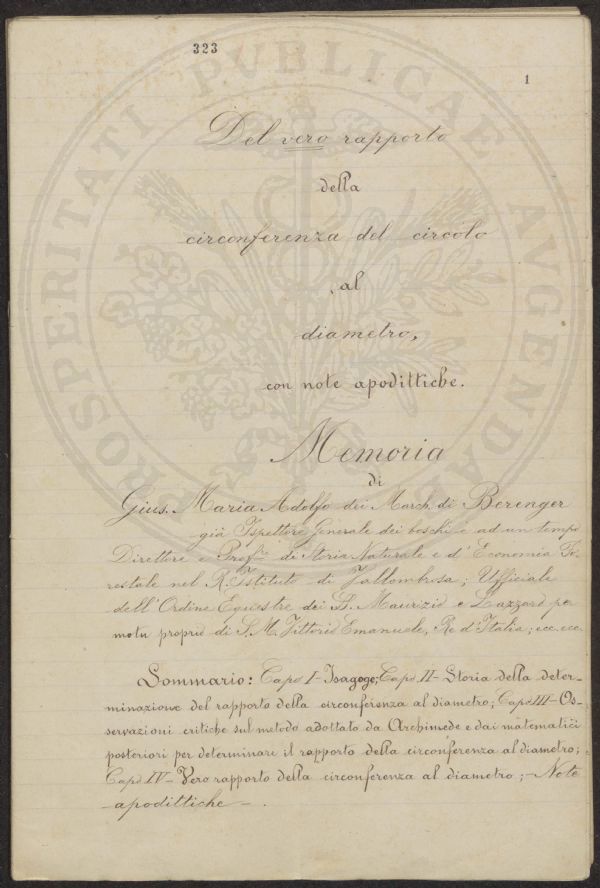 323
1
Del vero rapporto
della
circonferenza del circolo
al
diametro,
con note apodittiche.
Memoria
di
Gius. Maria Adolfo dei March. di Berenger
già Ispettore Generale dei boschi e ad un tempo
Direttore e Profre di Storia Naturale e d'Economia Fo-
restale nel R. Istituto di Vallombrosa; Ufficiale
dell'Ordine Equestre dei S. Maurizio e Lazzaro per
motu proprio di S. M. Vittorio Emanuele, Re d'Italia; ecc. ecc.
Sommario: Capo I- Isagoge; Capo II- Storia della deter-
minazione del rapporto della circonferenza al diametro; Capo III- Os-
servazioni critiche sul metodo adottato da Archimede e dai matematici
posteriori per determinare il rapporto della circonferenza al diametro;
Capo IV- Vero rapporto della circonferenza al diametro; - Note
apodittiche - .
PROSPERITATI PVBLICAE AVGENDAE